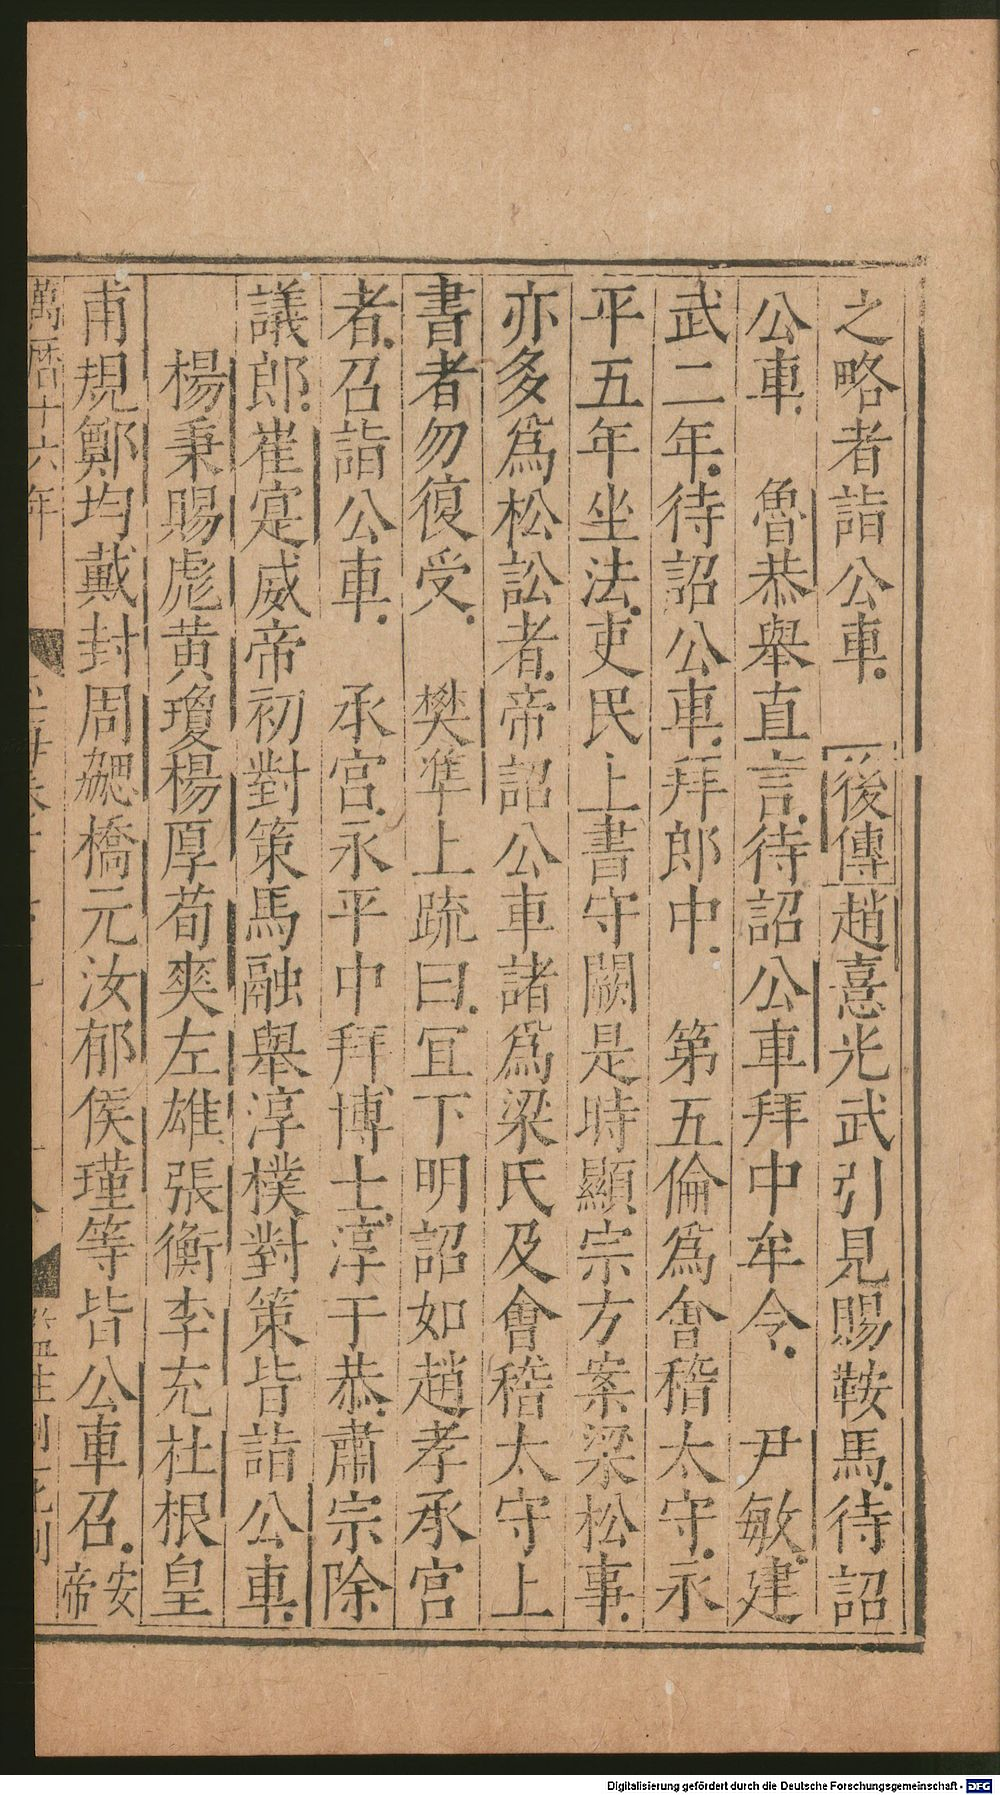 之略者詣公車 後傳趙憙光武引見賜鞍馬待詔
公車 魯恭舉直言待詔公車拜中牟令 尹敏建
武二年待詔公車拜郎中 第五倫爲會稽太守永
平五年坐法吏民上書守闕是時顯宗方案梁松事
亦多爲松訟者帝詔公車諸爲梁氏及會稽太守上
書者勿復受 樊準上疏曰宜下明詔如趙孝承宮
者召詣公車 承宮永平中拜博士淳于恭肅宗除
議郎崔寔威帝初對策馬融舉淳樸對策皆詣公車
楊秉賜彪黃瓊楊厚荀爽左雄張衡李充杜根皇
甫規鄭均戴封周勰橋元汝郁侯瑾等皆公車召安帝
萬曆十六年
Digitalisierung gefördert durch die Deutsche Forschungsgemeinschaft - DFG